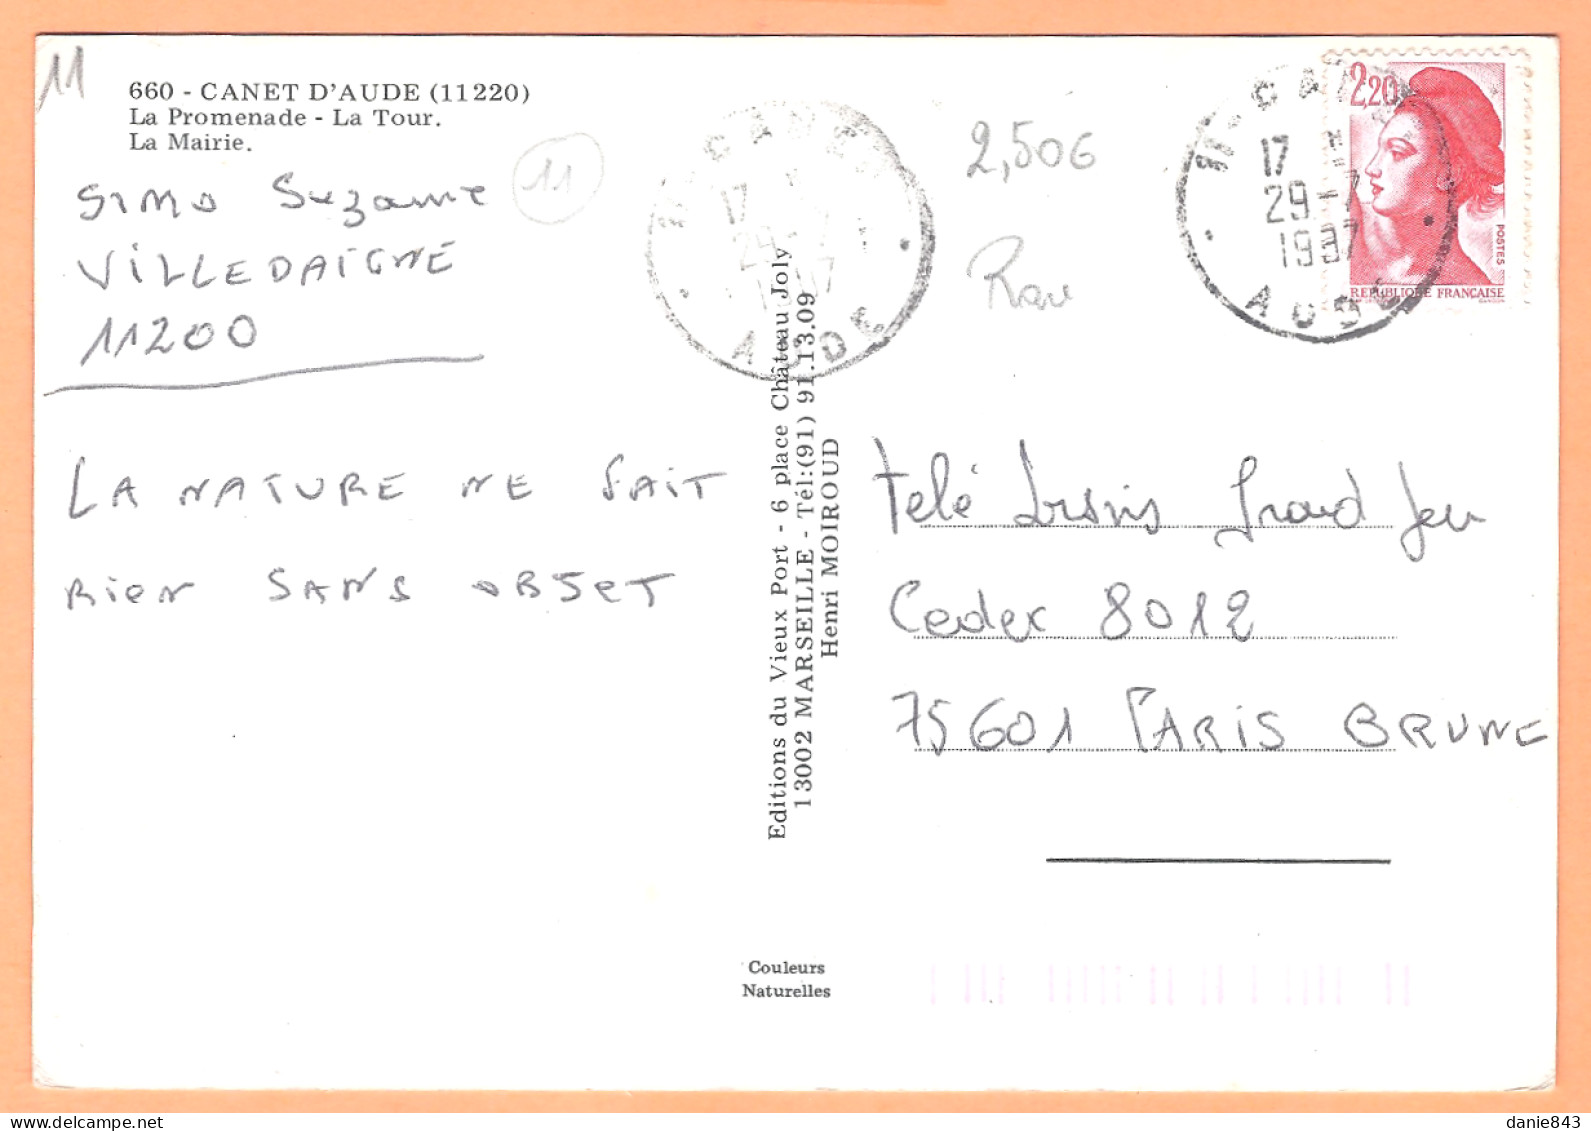 11
660 - CANET D'AUDE (11220)
La Promenade - La Tour.
La Mairie.
11
SIMO Suzanne
VILLEDAIGNE
11200
LA NATURE NE FAIT
RIEN SANS OBJET
Editions du Vieux Port - 6 place Château Joly
13002 MARSEILLE - Tél:(91) 91.13.09
Henri MOIROUD
Couleurs
Naturelles
2,50€
Rare
11 - CANET
17 H
29-7
AUDE
11 - CANET
17 H
29-7
1987
AUDE
2,20
POSTES
REPUBLIQUE FRANÇAISE
Télé Loisirs Grand Jeu
Cedex 8012
75601 PARIS BRUNE
danie843